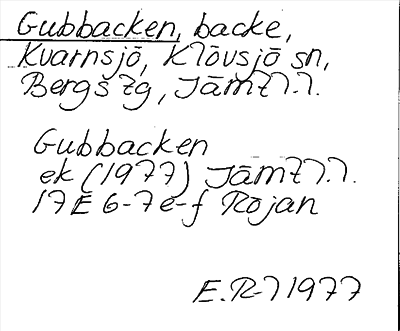 Gubbacken, backe,
Kvarnsjö, Klövsjö sn,
Bergs tg, Jämtl.l.
Gubbacken
ek (1977) Jämtl.l.
17E 6-7 e-f Rojan
E.R-l 1977